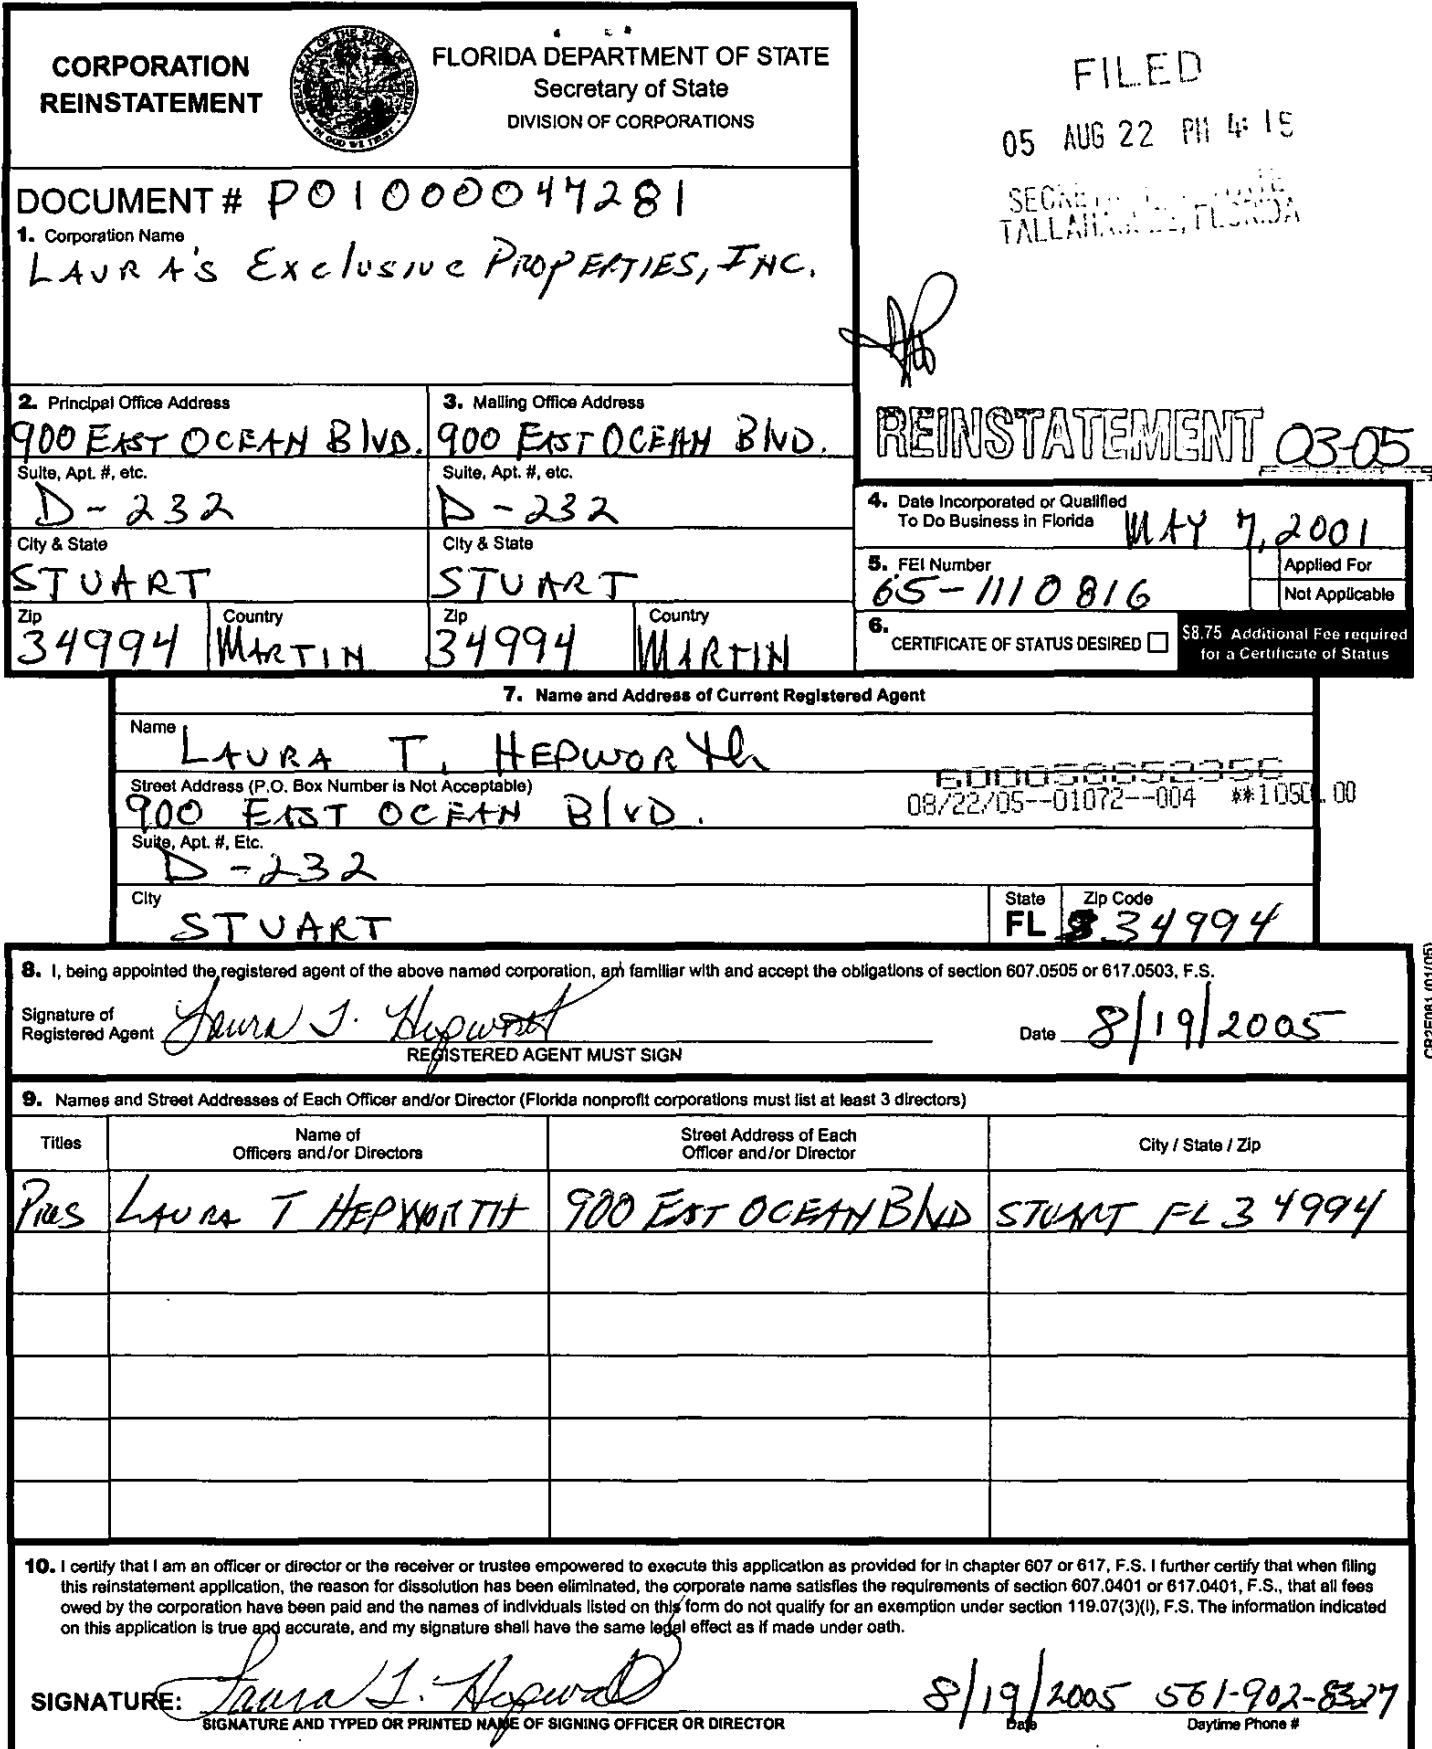 CORPORATION
REINSTATEMENT
FLORIDA DEPARTMENT OF STATE
Secretary of State
DIVISION OF CORPORATIONS
FILED
05 AUG 22 PM 4:15
TALLAHASSEE, FLORIDA
DOCUMENT # P01000047281
1. Corporation Name
LAURA'S Exclusive PROPERTIES, INC.
REINSTATEMENT 03-05
2. Principal Office Address
900 EAST OCEAN BLVD.
Suite, Apt. #, etc.
D-232
City & State
STUART
Zip
34994
Country
MARTIN
3. Mailing Office Address
900 EAST OCEAN BLVD.
Suite, Apt. #, etc.
D-232
City & State
STUART
Zip
34994
Country
MARTIN
4. Date Incorporated or Qualified
To Do Business in Florida MAY 7, 2001
5. FEI Number
65-1110816
Applied For
Not Applicable
6. CERTIFICATE OF STATUS DESIRED
$8.75 Additional Fee required
for a Certificate of Status
7. Name and Address of Current Registered Agent
Name
LAURA T. HEPWORTh
Street Address (P.O. Box Number is Not Acceptable)
900 EAST OCEAN BlVD.
08/22/05--01072--004 **1050.00
Suite, Apt. #, Etc.
D-232
City
STUART
State
FL
Zip Code
34994
8. I, being appointed the registered agent of the above named corporation, am familiar with and accept the obligations of section 607.0505 or 617.0503, F.S.
Signature of
Registered Agent Laura T. Hepworth
REGISTERED AGENT MUST SIGN
Date 8/19/2005
CR2E081 (01/05)
9. Names and Street Addresses of Each Officer and/or Director (Florida nonprofit corporations must list at least 3 directors)
Titles
Name of
Officers and/or Directors
Street Address of Each
Officer and/or Director
City / State / Zip
Pres LAURA T HEPWORTH 900 EAST OCEAN BlVD STUART FL 34994
10. I certify that I am an officer or director or the receiver or trustee empowered to execute this application as provided for in chapter 607 or 617, F.S. I further certify that when filing
this reinstatement application, the reason for dissolution has been eliminated, the corporate name satisfies the requirements of section 607.0401 or 617.0401, F.S., that all fees
owed by the corporation have been paid and the names of individuals listed on this form do not qualify for an exemption under section 119.07(3)(i), F.S. The information indicated
on this application is true and accurate, and my signature shall have the same legal effect as if made under oath.
SIGNATURE: Laura T. Hepworth 8/19/2005 561-902-8327
SIGNATURE AND TYPED OR PRINTED NAME OF SIGNING OFFICER OR DIRECTOR
Date
Daytime Phone #